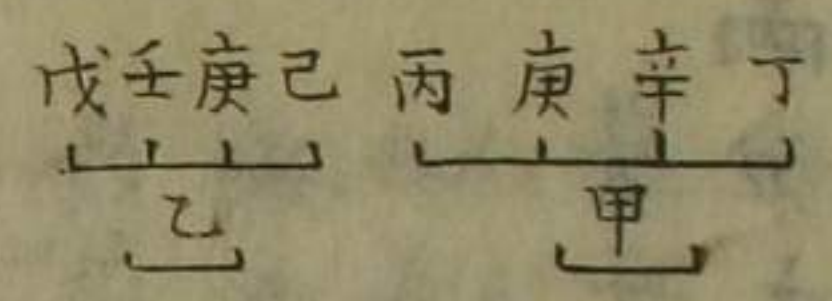 戊壬庚己 丙 庚 辛 丁
乙 甲